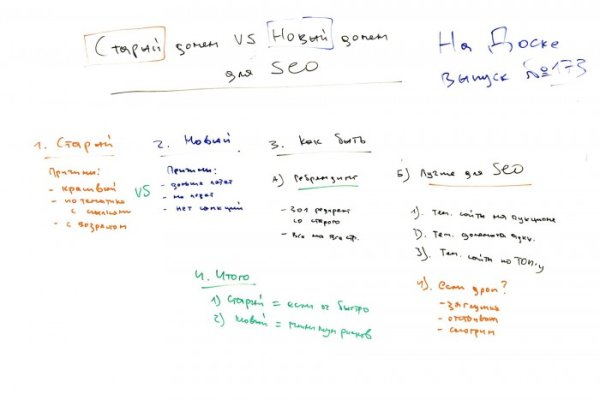 Старый домен VS Новый домен
для SEO
На Доске
выпуск №173
1. Старый
Причины:
- красивый
- по тематике
с ссылками
- с возрастом
VS
2. Новый
Причины:
- дольше
- не
- нет санкций
3. Как быть
А) Ребрендинг
- 301 редирект
со старого
- Все на все стр.
Б) Лучше для SEO
1). Тем. сайты на аукционе
2). Тем. домена аукц.
3). Тем. сайты по ТОП-у
4). если дроп?
- заглушка
- отстойник
- смотрим
4. Итого
1) Старый = если ог быстро
2) Новый = минимум рисков